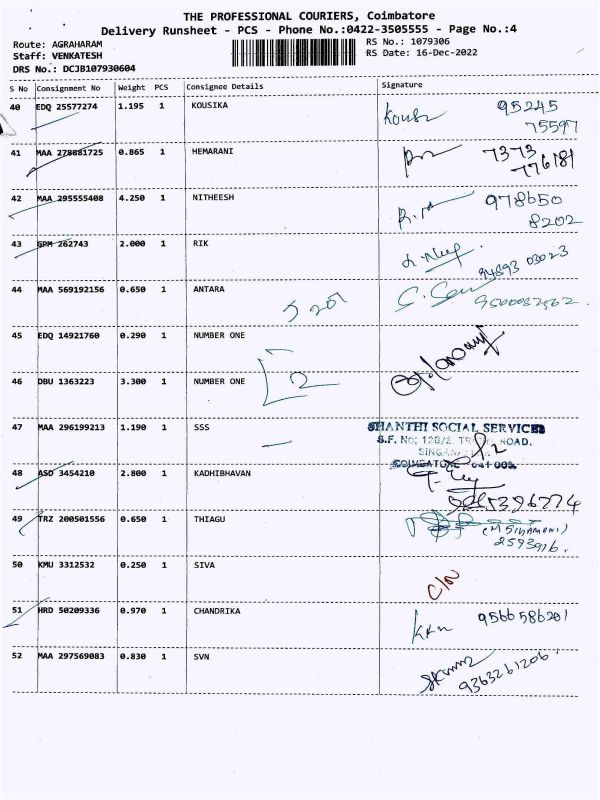 THE PROFESSIONAL COURIERS, Coimbatore
Delivery Runsheet - PCS - Phone No.:0422-3505555 - Page No.:4
Route: AGRAHARAM
RS No.: 1079306
Staff: VENKATESH
RS Date: 16-Dec-2022
DRS No.: DCJB107930604
S No Consignment No Weight PCS Consignee Details Signature
40 EDQ 25577274 1.195 1 KOUSIKA 95245
75597
41 MAA 278881725 0.865 1 HEMARANI 7373
776181
42 MAA 295555408 4.250 1 NITHEESH 978650
8202
43 GPM 262743 2.000 1 RIK
94893 03023
44 MAA 569192156 0.650 1 ANTARA
45 EDQ 14921760 0.290 1 NUMBER ONE
46 DBU 1363223 3.300 1 NUMBER ONE 2
47 MAA 296199213 1.190 1 SSS
SHANTHI SOCIAL SERVICES
S.F. No: ROAD.
COIMBATORE 641 005.
48 ASD 3454210 2.800 1 KADHIBHAVAN
49 TRZ 200501556 0.650 1 THIAGU
50 KMU 3312532 0.250 1 SIVA
51 HRD 50209336 0.970 1 CHANDRIKA 9566586201
52 MAA 297569083 0.830 1 SVN
9363261206